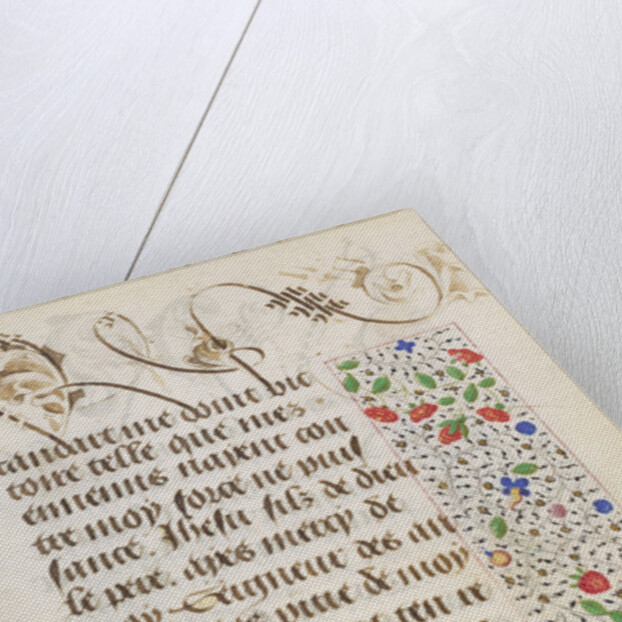 me dont vic
toire telle que mes
ennemis naient con
tre moy force ne puis
sance. Jhesu filz de dieu
le pere. ayes mercy de
Seigneur des
de moy